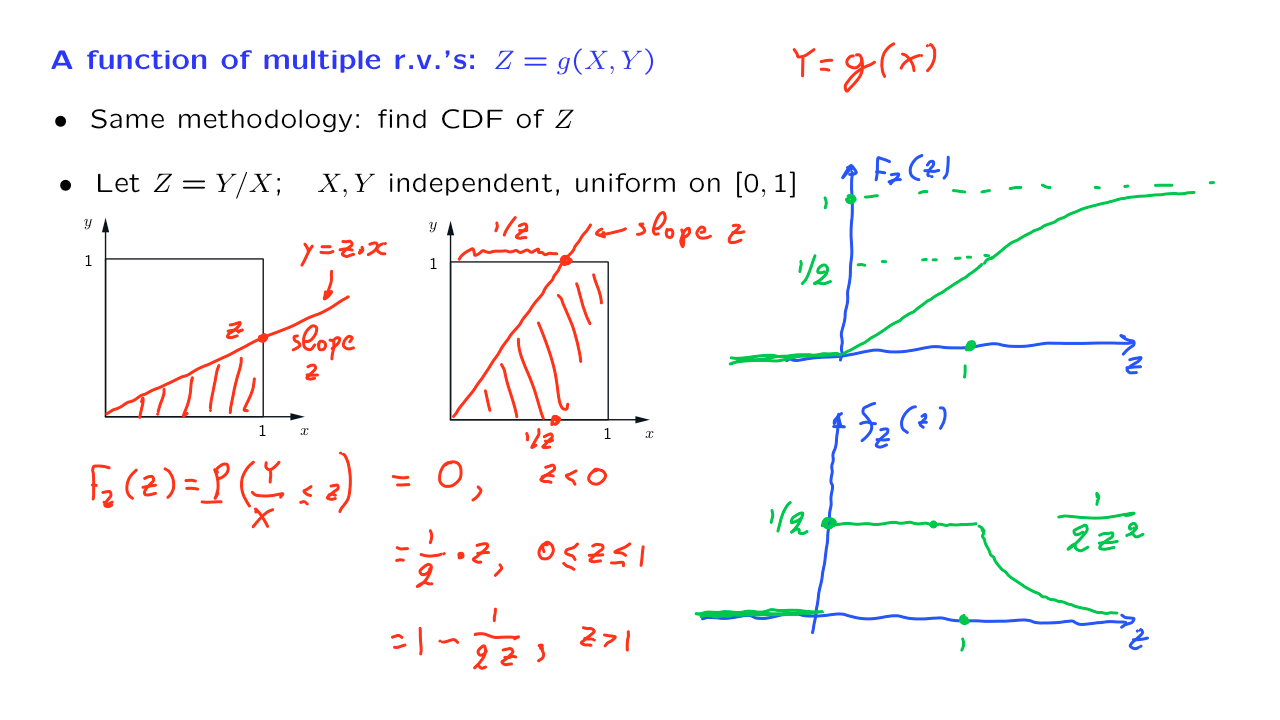 A function of multiple r.v.'s: Z = g(X, Y)
Y = g(X)
• Same methodology: find CDF of Z
• Let Z = Y/X; X, Y independent, uniform on [0, 1]
y
1
y = z·x
z
slope z
1
x
y
1
1/z
slope z
1/z
1
x
F_Z(z)
1
1/2
1
z
F_Z(z) = P(Y/X ≤ z) = 0, z < 0
= 1/2 · z, 0 ≤ z ≤ 1
= 1 − 1/2z, z > 1
f_Z(z)
1/2
1/2z²
1
z